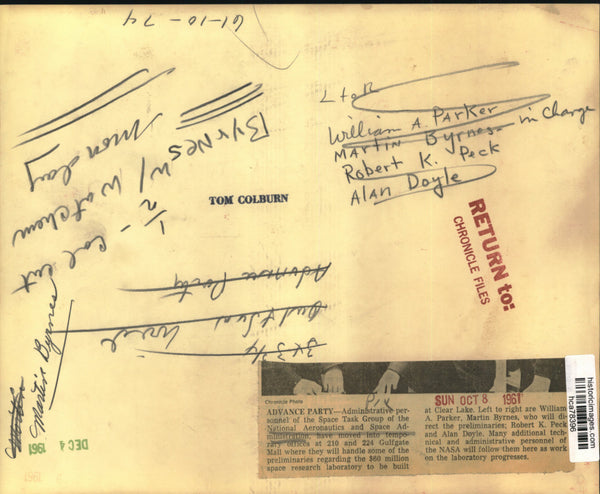 61-10-74
L to R
William A. Parker
Martin Byrnes - in Charge
Robert K. Peck
Alan Doyle
Byrnes
Monday
1/2 - Col cut
TOM COLBURN
RETURN to:
CHRONICLE FILES
Advance Party
3 x 3 1/4
Martin Byrnes
DEC 4
1961
1961
historicimages.com
hca78396
Chronicle Photo
Pix
SUN OCT 8 1961
ADVANCE PARTY—Administrative per-
sonnel of the Space Task Group of the
National Aeronautics and Space Ad-
ministration, have moved into tempo-
rary offices at 210 and 224 Gulfgate
Mall where they will handle some of the
preliminaries regarding the $60 million
space research laboratory to be built
at Clear Lake. Left to right are William
A. Parker, Martin Byrnes, who will di-
rect the preliminaries; Robert K. Peck
and Alan Doyle. Many additional tech-
nical and administrative personnel of
the NASA will follow them here as work
on the laboratory progresses.